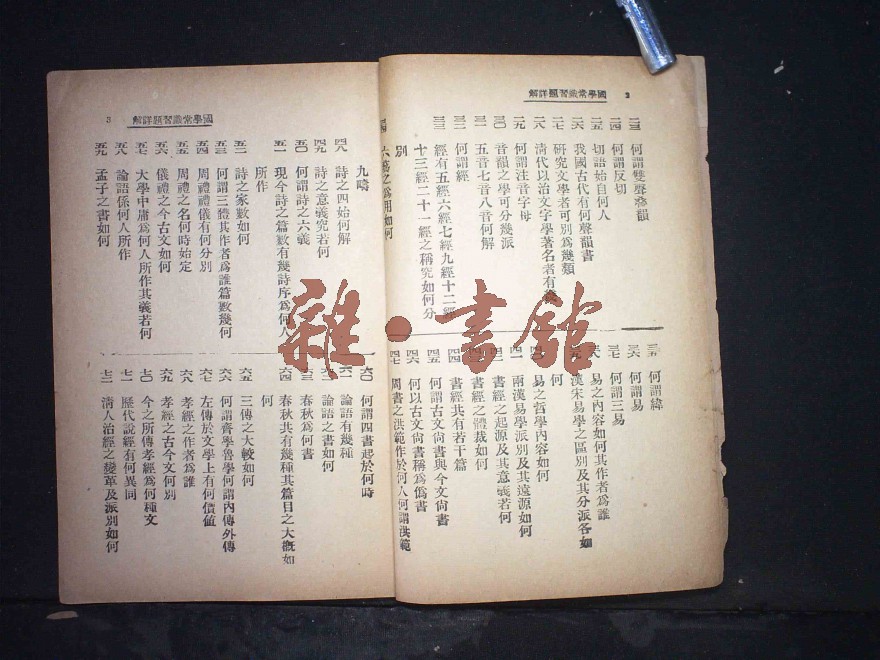 國學常識習題詳解 2
二三 何謂雙聲疊韻
二四 何謂反切
二五 切語始自何人
二六 我國古代有何聲韻書
二七 研究文學者可別為幾類
二八 清代以治文字學著名者有幾
二九 何謂注音字母
三〇 音韻之學可分幾派
三一 五音七音八音何解
三二 何謂經
三三 經有五經六經七經九經十二經
十三經二十一經之稱究如何分
別
三四 六藝之為用如何
三五 何謂緯
三六 何謂易
三七 何謂三易
三八 易之內容如何其作者為誰
三九 漢宋易學之區別及其分派各如
何
四〇 易之哲學內容如何
四一 兩漢易學派別及其遠源如何
四二 書經之起源及其意義若何
四三 書經之體裁如何
四四 書經共有若干篇
四五 何謂古文尚書與今文尚書
四六 何以古文尚書稱為偽書
四七 周書之洪範作於何人何謂洪範
國學常識習題詳解 3
九疇
四八 詩之四始何解
四九 詩之意義究若何
五〇 何謂詩之六義
五一 現今詩之篇數有幾詩序為何人
所作
五二 詩之家數如何
五三 何謂三體其作者為誰篇數幾何
五四 周禮禮儀有何分別
五五 周禮之名何時始定
五六 儀禮之今古文如何
五七 大學中庸為何人所作其義若何
五八 論語係何人所作
五九 孟子之書如何
六〇 何謂四書起於何時
六一 論語有幾種
六二 論語之書如何
六三 春秋為何書
六四 春秋共有幾種其篇目之大概如
何
六五 三傳之大較如何
六六 何謂齊學魯學何謂內傳外傳
六七 左傳於文學上有何價值
六八 孝經之作者為誰
六九 孝經之古今文何別
七〇 今之所傳孝經為何種文
七一 歷代說經有何異同
七二 清人治經之變革及派別如何
雜·書館